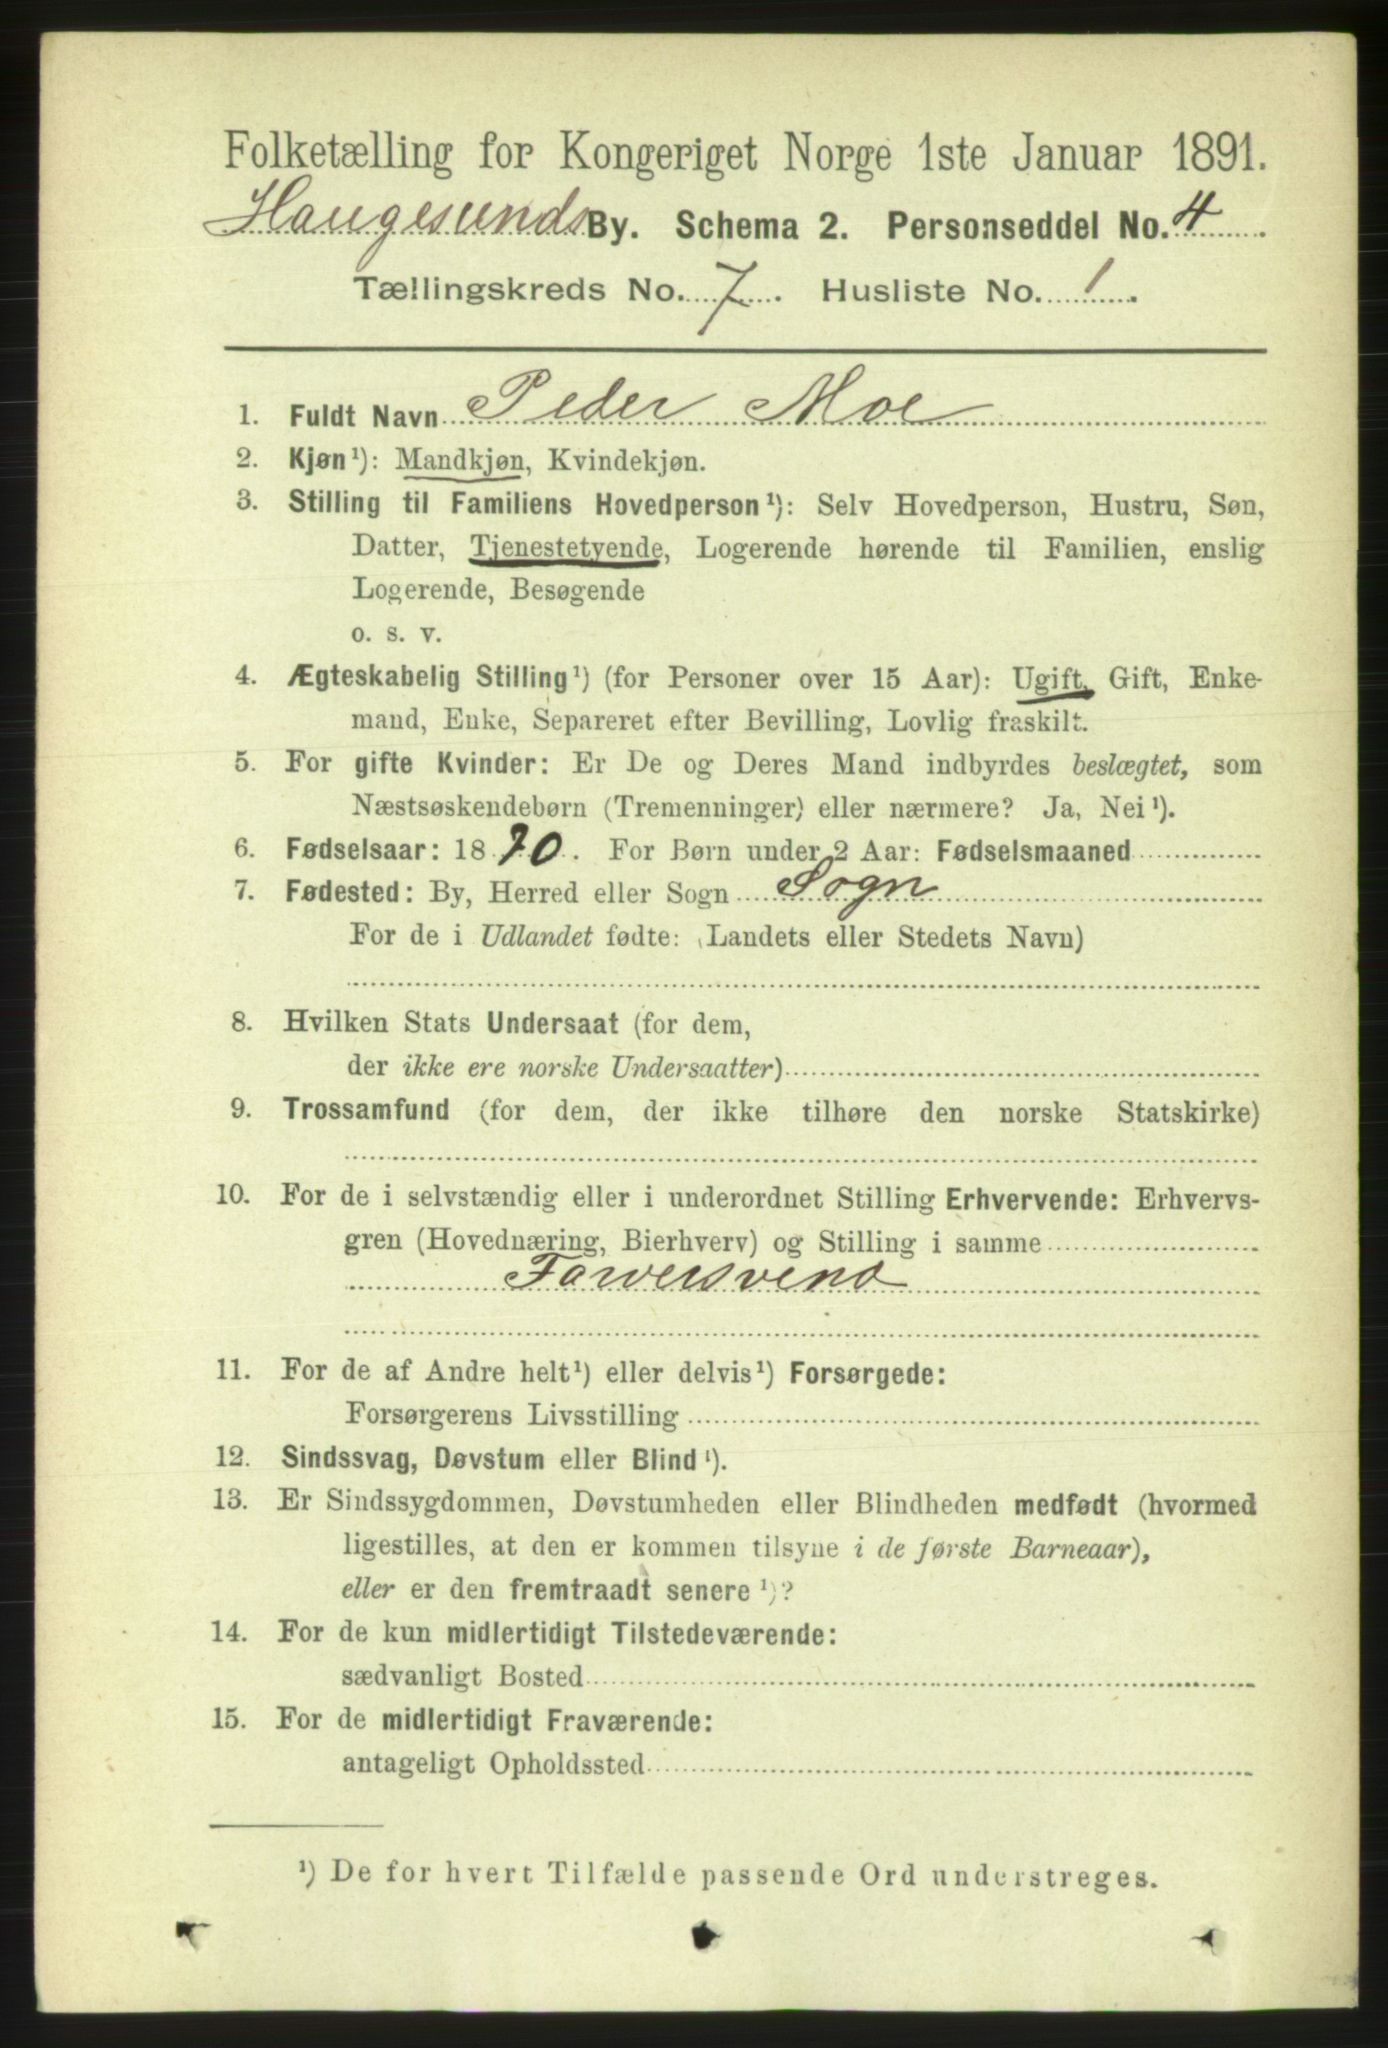 Folketælling for Kongeriget Norge 1ste Januar 1891.
Haugesunds By. Schema 2. Personseddel No. 4
Tællingskreds No. 7. Husliste No. 1.
1. Fuldt Navn Peder Moe
2. Kjøn¹): Mandkjøn, Kvindekjøn.
3. Stilling til Familiens Hovedperson¹): Selv Hovedperson, Hustru, Søn,
Datter, Tjenestetyende, Logerende hørende til Familien, enslig
Logerende, Besøgende
o. s. v.
4. Ægteskabelig Stilling¹) (for Personer over 15 Aar): Ugift, Gift, Enke-
mand, Enke, Separeret efter Bevilling, Lovlig fraskilt.
5. For gifte Kvinder: Er De og Deres Mand indbyrdes beslægtet, som
Næstsøskendebørn (Tremenninger) eller nærmere? Ja, Nei¹).
6. Fødselsaar: 1870. For Børn under 2 Aar: Fødselsmaaned
7. Fødested: By, Herred eller Sogn Sogn
For de i Udlandet fødte: (Landets eller Stedets Navn)
8. Hvilken Stats Undersaat (for dem,
der ikke ere norske Undersaatter)
9. Trossamfund (for dem, der ikke tilhøre den norske Statskirke)
10. For de i selvstændig eller i underordnet Stilling Erhvervende: Erhvervs-
gren (Hovednæring, Bierhverv) og Stilling i samme
Farversvend
11. For de af Andre helt¹) eller delvis¹) Forsørgede:
Forsørgerens Livsstilling
12. Sindssvag, Døvstum eller Blind¹).
13. Er Sindssygdommen, Døvstumheden eller Blindheden medfødt (hvormed
ligestilles, at den er kommen tilsyne i de første Barneaar),
eller er den fremtraadt senere¹)?
14. For de kun midlertidigt Tilstedeværende:
sædvanligt Bosted
15. For de midlertidigt Fraværende:
antageligt Opholdssted
¹) De for hvert Tilfælde passende Ord understreges.